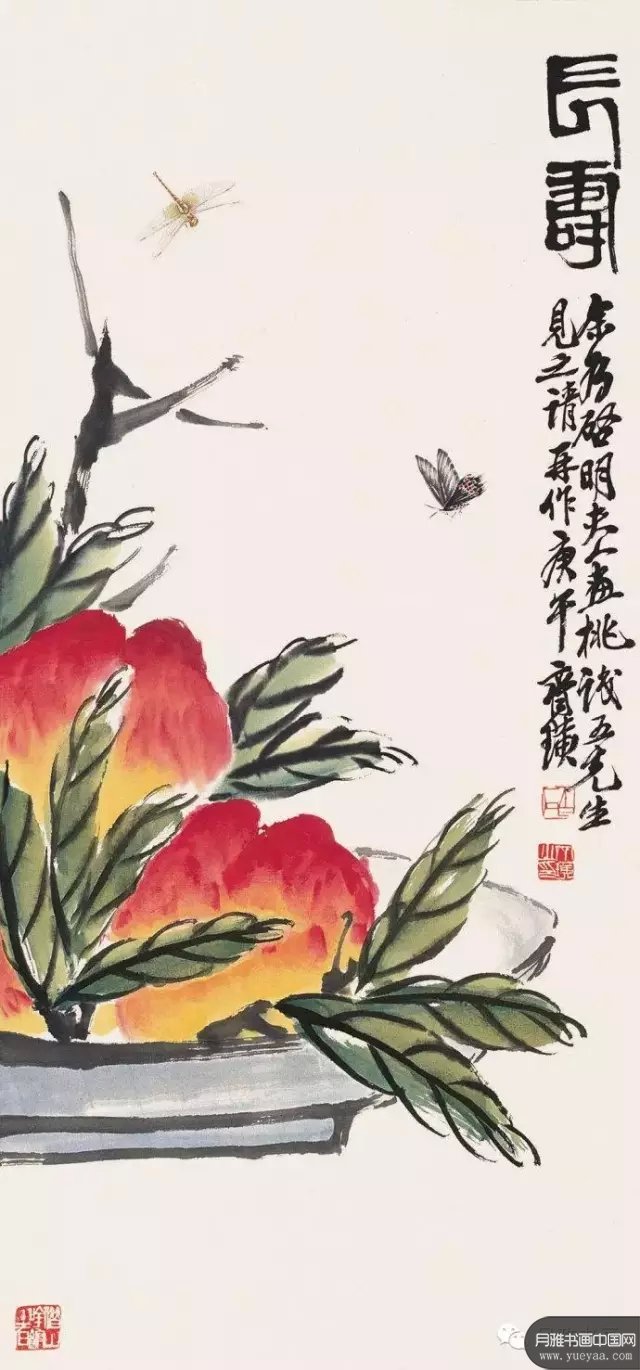 長壽
余為啓明夫人畫桃識五先生
見之請再作庚午齊璜
月雅书画中国网
www.yueyaa.com